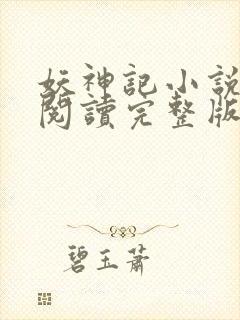 妖神記小說
閱讀完整版
碧玉蕭